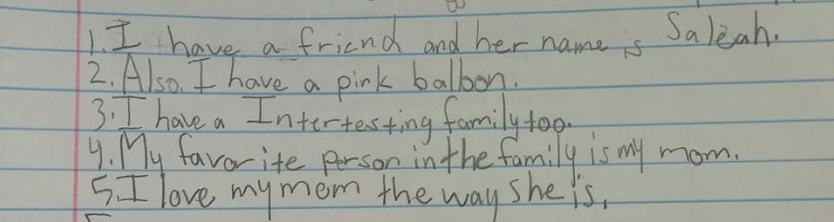 1. I have a friend and her name is Saleah.
2. Also. I have a pink balloon.
3. I have a Intertesting family too.
4. My favorite person in the family is my mom.
5. I love my mom the way she is.